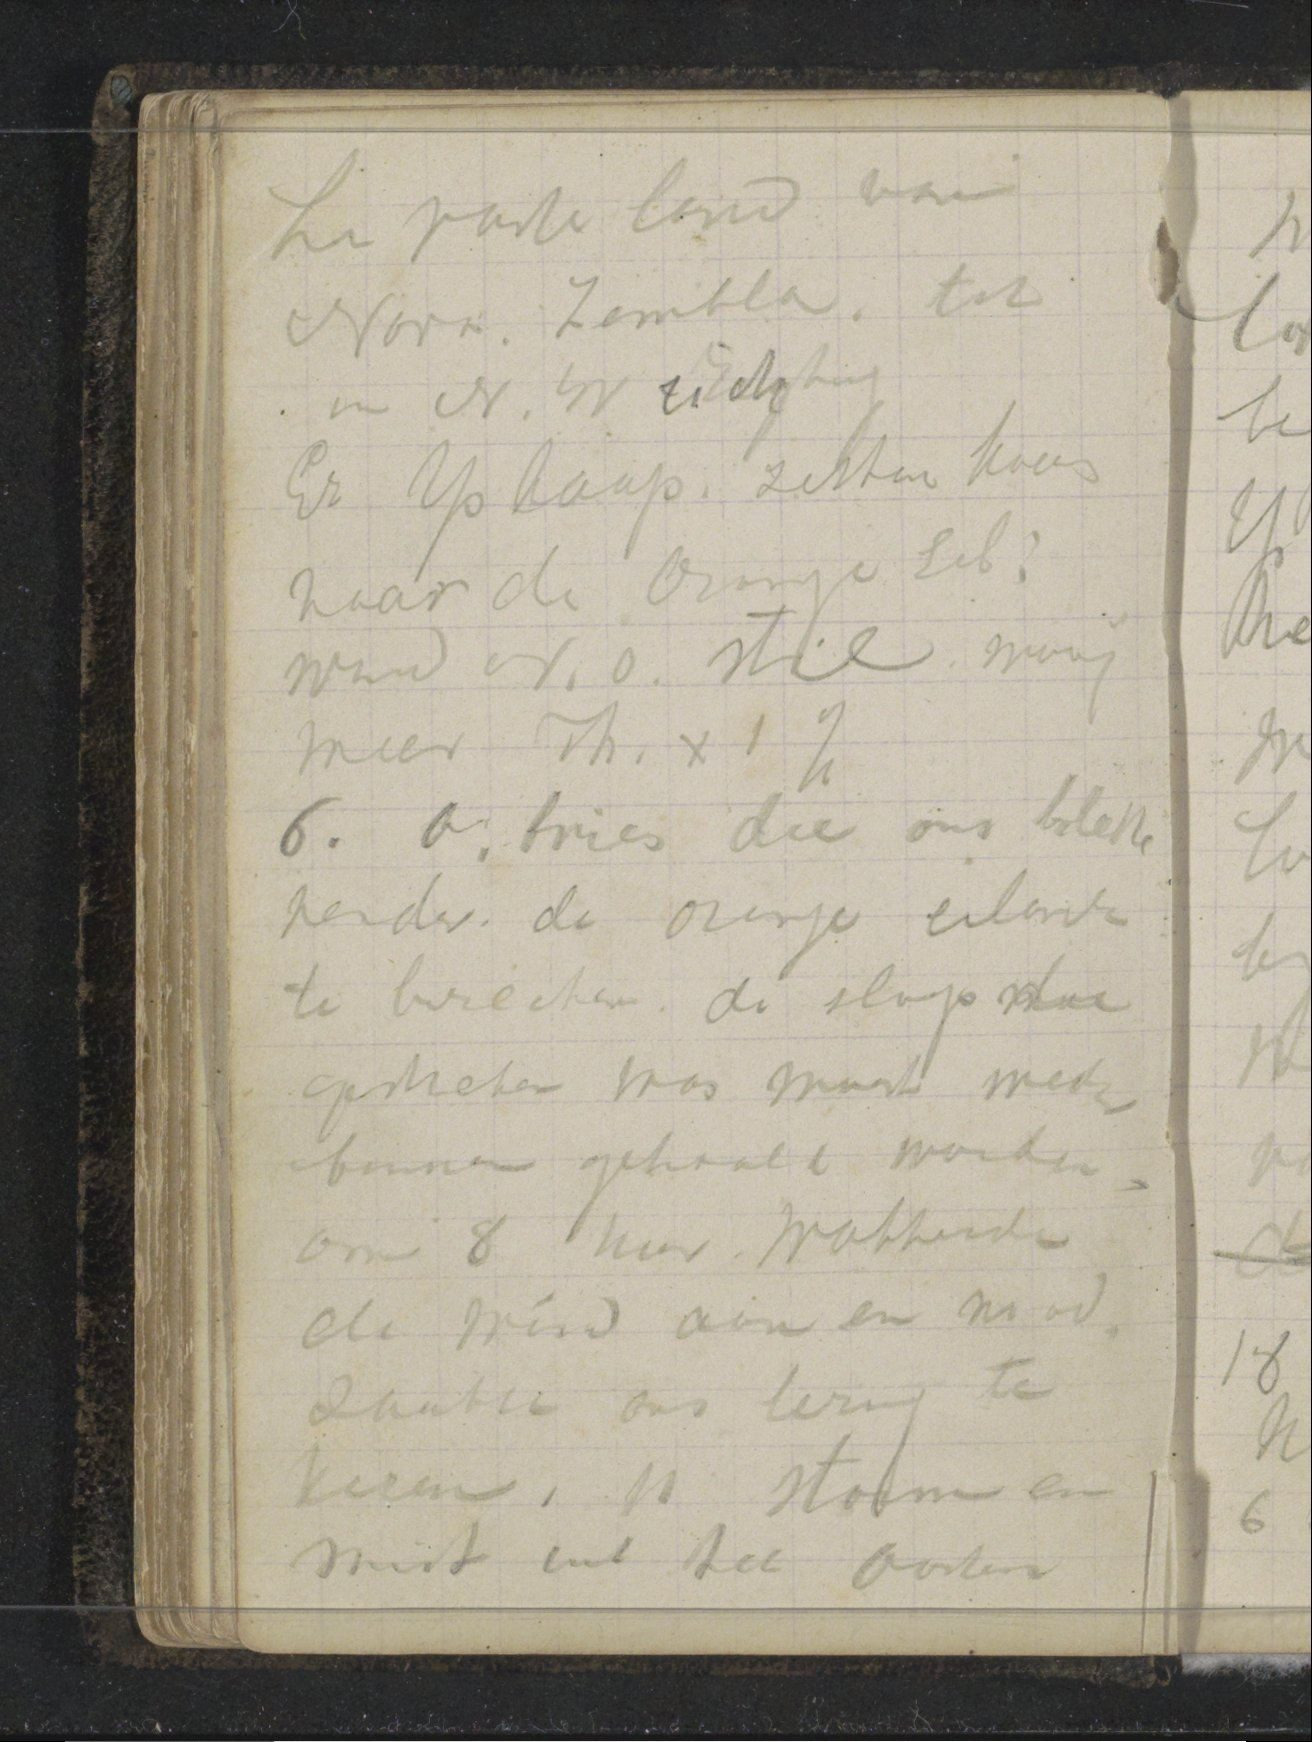 he vaste land van
Nova. Zembla. tot
in N. W richting
En Yskaap. zetten koers
naar de Oranje Eil:
wind N. O. stil mooij
weer Th. x 1
6. O. bries die ons belette
verder. de oranje eilande
te bereiken. de sloep die
gestreken was moest weder
binnen gehaald worden,
om 8 uur. wakkerde
de wind aan en nood.
zaakte ons terug te
keren, storm en
mist uit het oosten
lo
be
Y
18
6